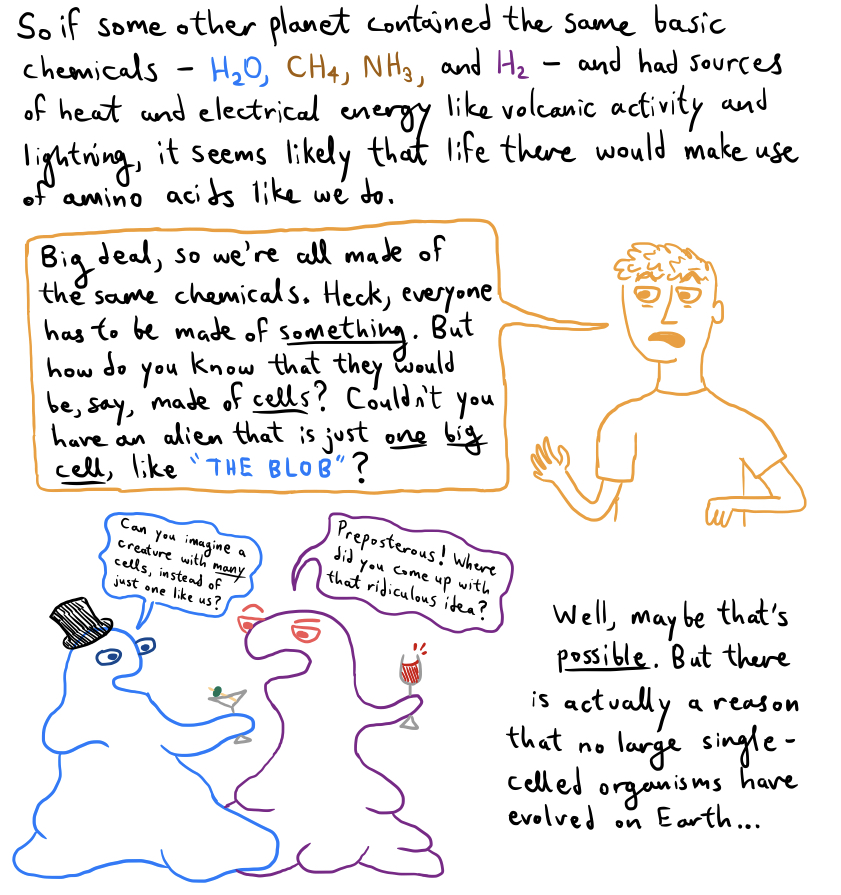 So if some other planet contained the same basic
chemicals – H₂O, CH₄, NH₃, and H₂ – and had sources
of heat and electrical energy like volcanic activity and
lightning, it seems likely that life there would make use
of amino acids like we do.
Big deal, so we're all made of
the same chemicals. Heck, everyone
has to be made of something. But
how do you know that they would
be, say, made of cells? Couldn't you
have an alien that is just one big
cell, like "THE BLOB"?
Can you imagine a
creature with many
cells, instead of
just one like us?
Preposterous! Where
did you come up with
that ridiculous idea?
Well, maybe that's
possible. But there
is actually a reason
that no large single-
celled organisms have
evolved on Earth...